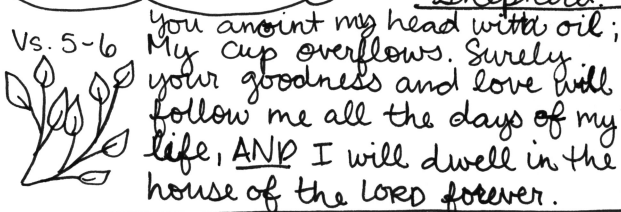 Shepherd.
Vs. 5-6
you anoint my head with oil;
My cup overflows. Surely
your goodness and love will
follow me all the days of my
life, AND I will dwell in the
house of the LORD forever.